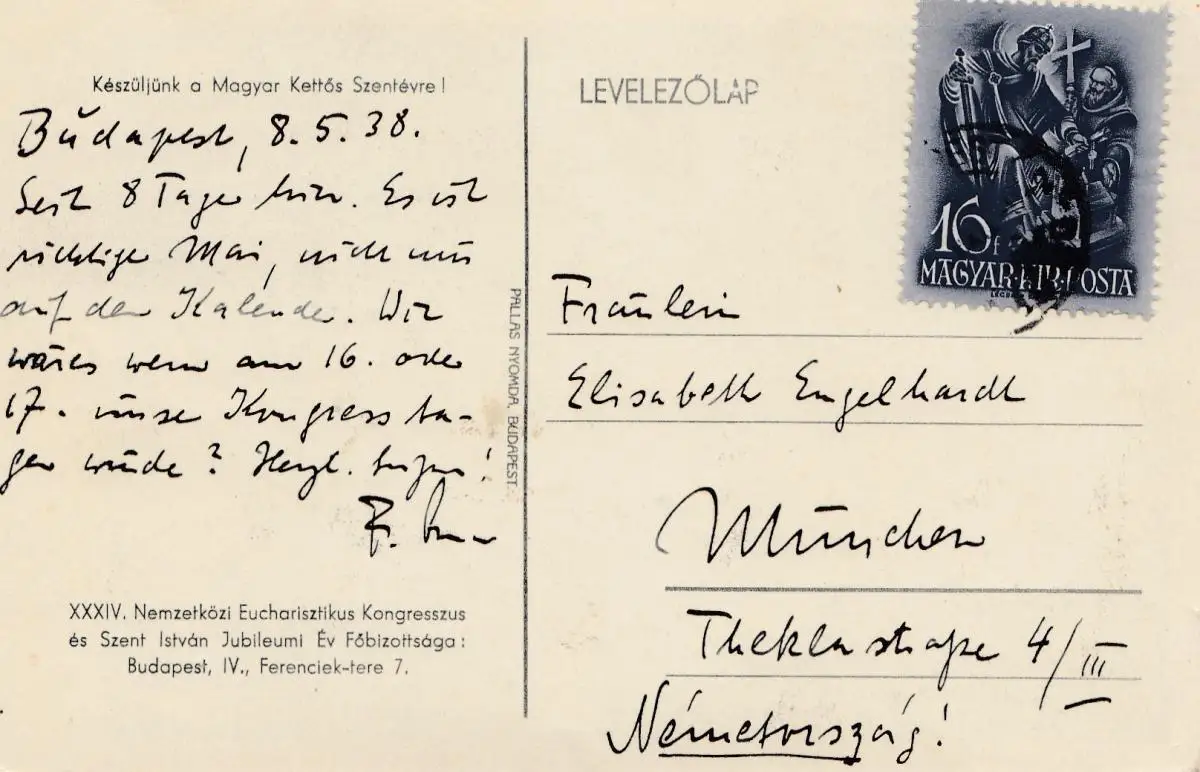 Készüljünk a Magyar Kettős Szentévre!
Budapest, 8.5.38.
Seit 8 Tage hier. Es ist
richtiger Mai, nicht nur
auf dem Kalender. Wie
wäre es wenn am 16. oder
17. unser Kongress ta-
gen würde? Herzl.
F.
XXXIV. Nemzetközi Eucharisztikus Kongresszus
és Szent István Jubileumi Év Főbizottsága:
Budapest, IV., Ferenciek-tere 7.
PALLAS NYOMDA, BUDAPEST.
LEVELEZŐLAP
16f
MAGYAR·KIR·POSTA
Fräulein
Elisabeth Engelhardt
München
Theklastraße 4/III
Németország!